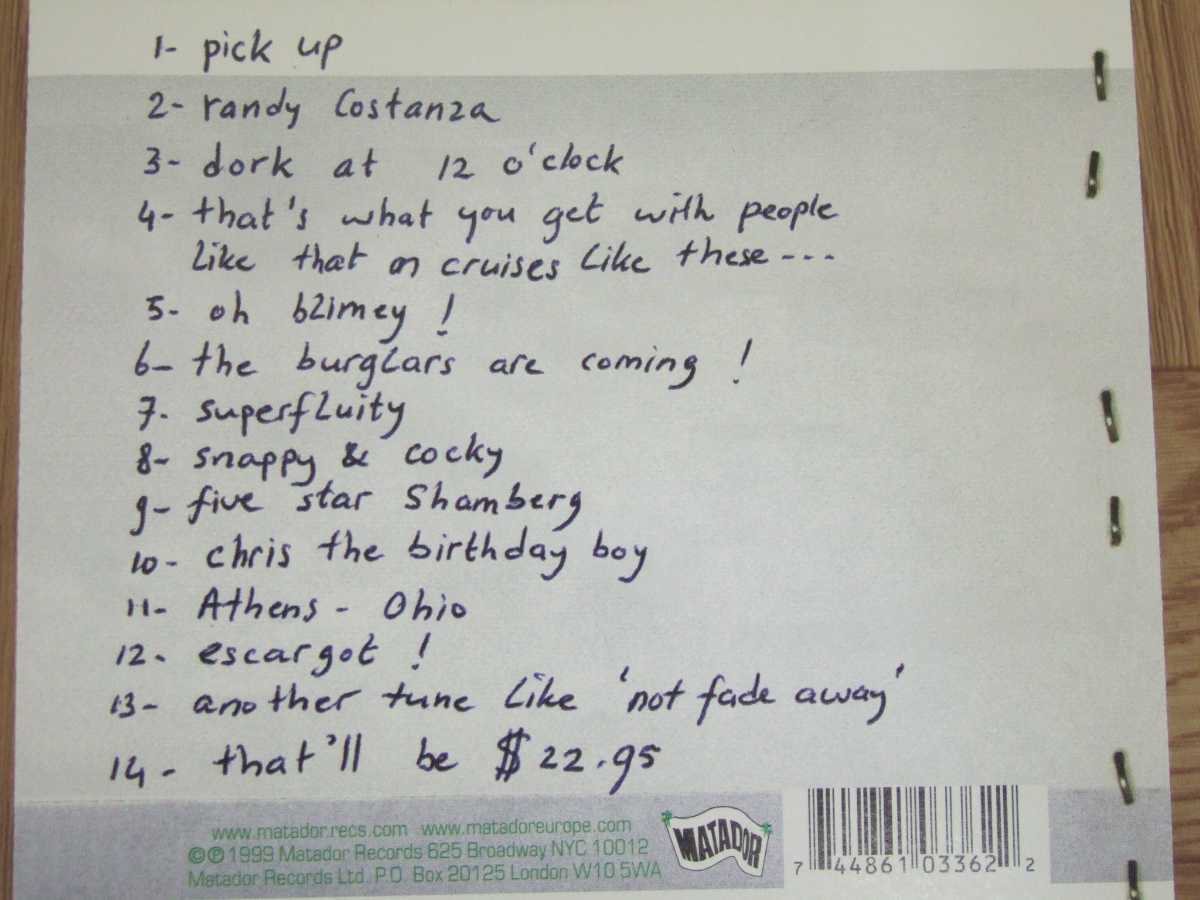 1- pick up
2- randy Costanza
3- dork at 12 o'clock
4- that's what you get with people
like that on cruises like these---
5- oh blimey !
6- the burglars are coming !
7. superfluity
8- snappy & cocky
9- five star Shamberg
10- chris the birthday boy
11- Athens - Ohio
12. escargot !
13- another tune like 'not fade away'
14- that'll be $22.95
www.matador.recs.com www.matadoreurope.com
©℗1999 Matador Records 625 Broadway NYC 10012
Matador Records Ltd. P.O. Box 20125 London W10 5WA
MATADOR
7 44861 03362 2